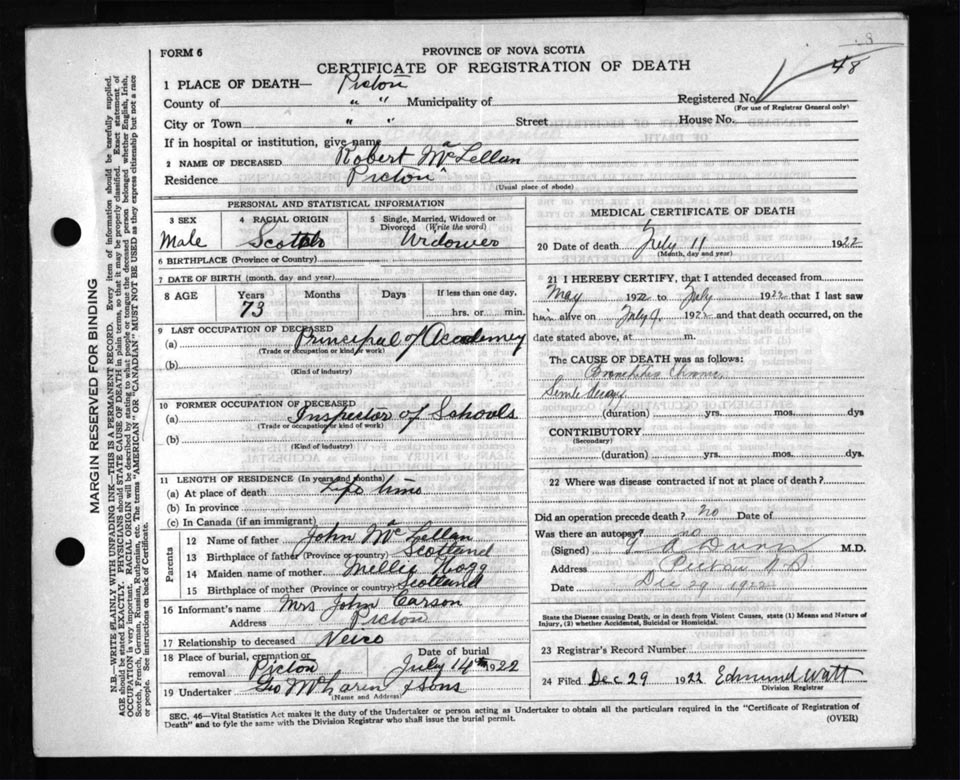 FORM 6
PROVINCE OF NOVA SCOTIA
48
CERTIFICATE OF REGISTRATION OF DEATH
1 PLACE OF DEATH— Pictou
County of " " Municipality of Registered No.
(For use of Registrar General only)
City or Town " " Street House No.
If in hospital or institution, give name
2 NAME OF DECEASED Robert McLellan
Residence Pictou
(Usual place of abode)
PERSONAL AND STATISTICAL INFORMATION
3 SEX 4 RACIAL ORIGIN 5 Single, Married, Widowed or
Divorced (Write the word)
Male Scotch Widower
6 BIRTHPLACE (Province or Country)
7 DATE OF BIRTH (month, day and year)
8 AGE Years Months Days If less than one day,
73 hrs. or min.
9 LAST OCCUPATION OF DECEASED
(a) Principal of Academey
(Trade or occupation or kind of work)
(b)
(Kind of industry)
10 FORMER OCCUPATION OF DECEASED
(a) Inspector of Schools
(Trade or occupation or kind of work)
(b)
(Kind of industry)
11 LENGTH OF RESIDENCE (In years and months)
(a) At place of death Life time
(b) In province
(c) In Canada (if an immigrant)
Parents
12 Name of father John McLellan
13 Birthplace of father (Province or country) Scotland
14 Maiden name of mother Millie Hogg
15 Birthplace of mother (Province or country) Scotland
16 Informant's name Mrs John Carson
Address Pictou
17 Relationship to deceased Neice
18 Place of burial, cremation or Date of burial
removal Pictou July 14th 1922
19 Undertaker Geo McLaren & Sons
(Name and Address)
MEDICAL CERTIFICATE OF DEATH
20 Date of death July 11 1922
(Month, day and year)
21 I HEREBY CERTIFY, that I attended deceased from
May 1922 to July 1922 that I last saw
him alive on July 9, 1922 and that death occurred, on the
date stated above, at m.
The CAUSE OF DEATH was as follows:
Bronchitis Chronic
Senile Decay
(duration) yrs. mos. dys
CONTRIBUTORY
(Secondary)
(duration) yrs. mos. dys.
22 Where was disease contracted if not at place of death?
Did an operation precede death? no Date of
Was there an autopsy? no
(Signed) A Dunn M.D.
Address Pictou N.S
Date Dec 29 1922
State the Disease causing Death, or in death from Violent Causes, state (1) Means and Nature of
Injury, (2) whether Accidental, Suicidal or Homicidal.
23 Registrar's Record Number
24 Filed Dec 29 1922 Edmund Watt
Division Registrar
SEC. 46—Vital Statistics Act makes it the duty of the Undertaker or person acting as Undertaker to obtain all the particulars required in the "Certificate of Registration of
Death" and to fyle the same with the Division Registrar who shall issue the burial permit. (OVER)
MARGIN RESERVED FOR BINDING
N.B.—WRITE PLAINLY WITH UNFADING INK—THIS IS A PERMANENT RECORD. Every item of information should be carefully supplied.
AGE should be stated EXACTLY. PHYSICIANS should STATE CAUSE OF DEATH in plain terms, so that it may be properly classified. Exact statement of
OCCUPATION is very important. RACIAL ORIGIN will be described by stating to what people or tongue the deceased person belonged whether English, Irish,
Scotch, French, German, Russian, Ruthenian, etc. The terms "AMERICAN" OR "CANADIAN" MUST NOT BE USED as they express citizenship but not a race
or people. See instructions on back of Certificate.